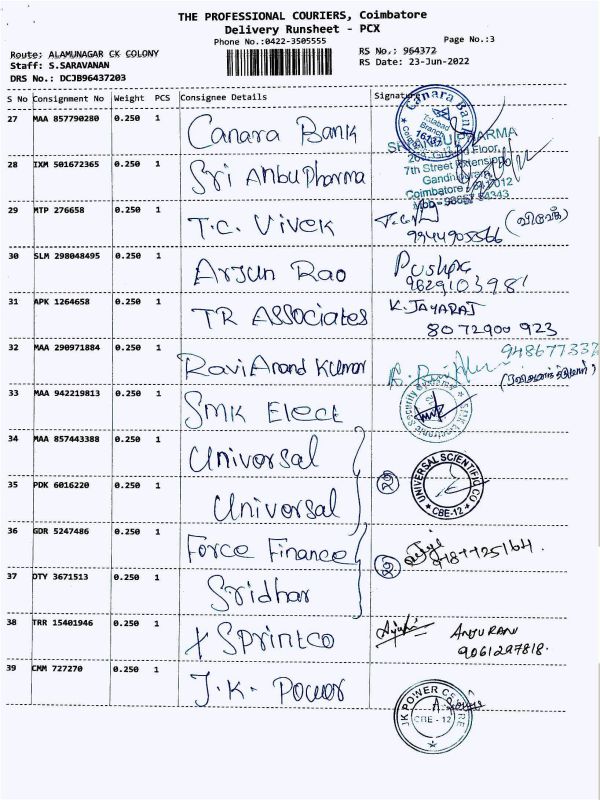 THE PROFESSIONAL COURIERS, Coimbatore
Delivery Runsheet - PCX
Phone No.:0422-3505555
Page No.:3
Route: ALAMUNAGAR CK COLONY
RS No.: 964372
Staff: S.SARAVANAN
RS Date: 23-Jun-2022
DRS No.: DCJB96437203
S No Consignment No Weight PCS Consignee Details Signature
27 MAA 857790280 0.250 1 Canara Bank
Canara Bank
Branch
28 IXM 501672365 0.250 1 Sri Anbu Pharma
PHARMA
Floor,
7th Street Extension
Gandhi
Coimbatore
29 MTP 276658 0.250 1 T.C. Vivek
(விவேக்)
9944905566
30 SLM 298048495 0.250 1 Arjun Rao
Pushpa
9629103981
31 APK 1264658 0.250 1 TR Associates
K. JAYARAJ
8072900923
32 MAA 290971884 0.250 1 Ravi Anand Kumar
33 MAA 942219813 0.250 1 SMK Elect
34 MAA 857443388 0.250 1 Universal
35 PDK 6016220 0.250 1 Universal
UNIVERSAL SCIENTIFIC CO
CBE-12
36 GDR 5247486 0.250 1 Force Finance
37 DTY 3671513 0.250 1 Sridhar
38 TRR 15401946 0.250 1 X Sprintco
ANJU RANI
9061297818.
39 CMM 727270 0.250 1 J.K. Power
JK POWER CENTRE
CBE - 12